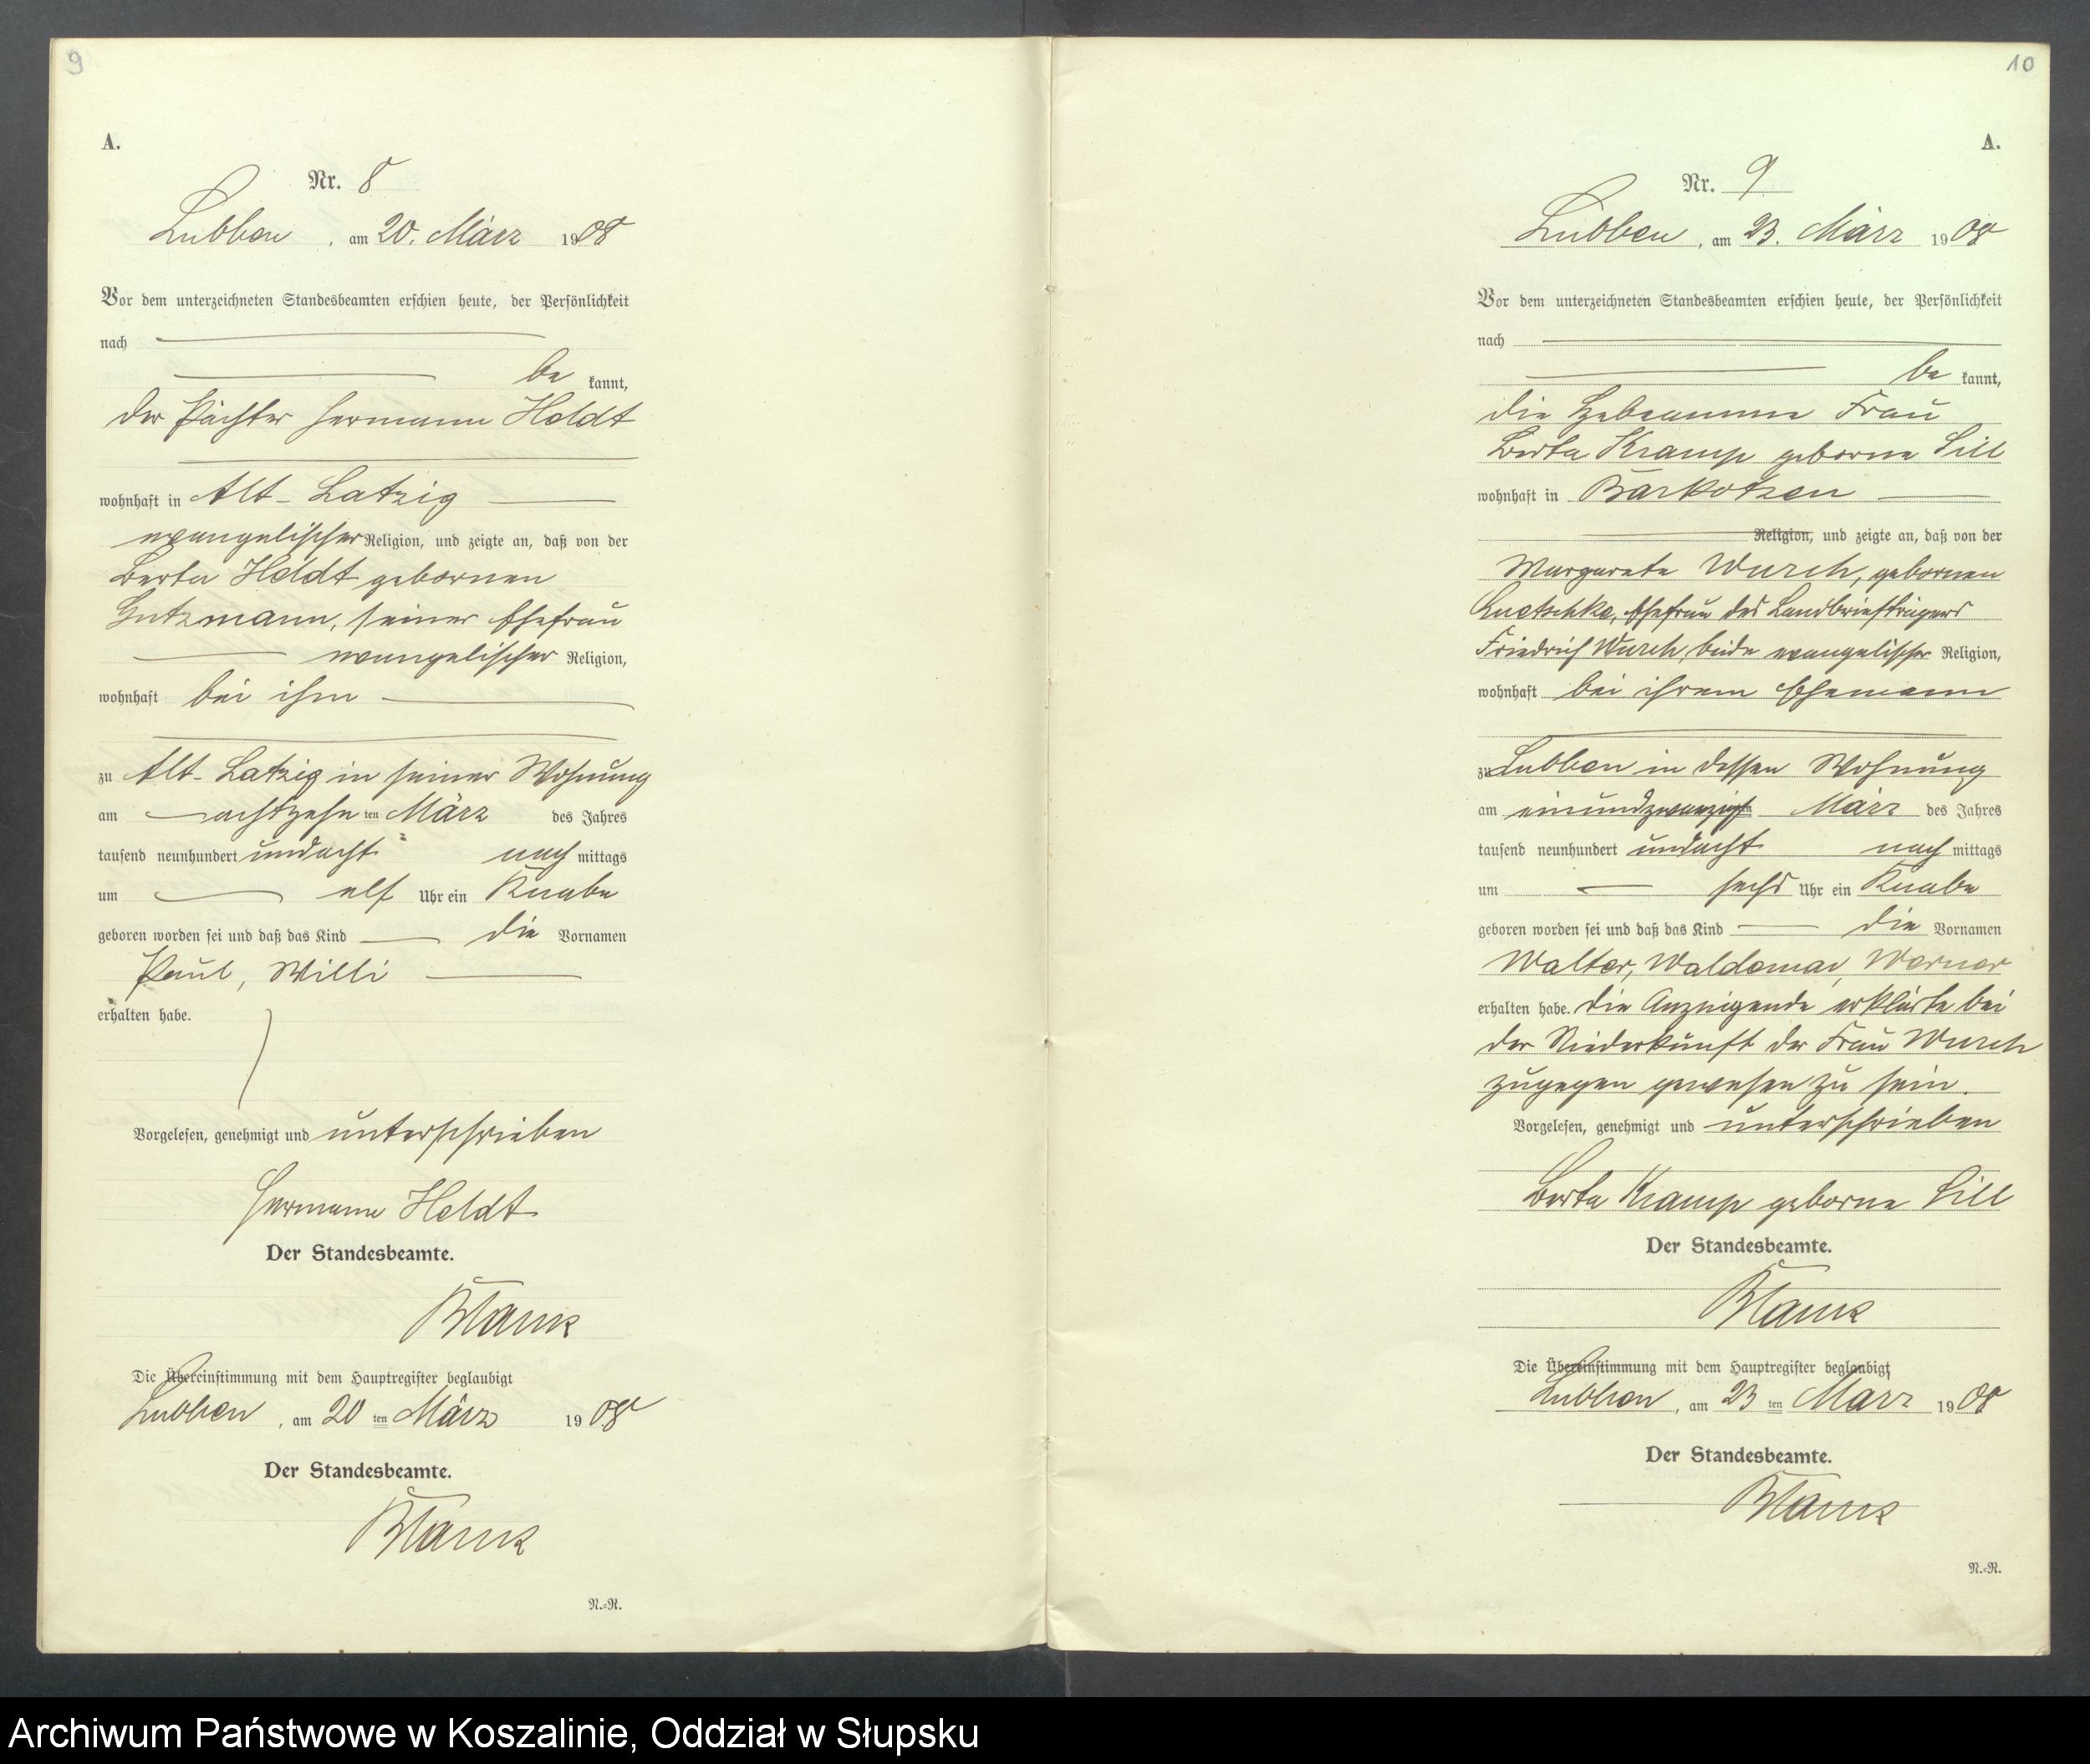 9
A.
Nr. 8
Lubben, am 20. März 1908
Vor dem unterzeichneten Standesbeamten erschien heute, der Persönlichkeit
nach
be kannt,
der Pächter Hermann Holdt
wohnhaft in Alt-Latzig
evangelischer Religion, und zeigte an, daß von der
Berta Holdt gebornen
Gutzmann, seiner Ehefrau
evangelischer Religion,
wohnhaft bei ihm
zu Alt-Latzig in seiner Wohnung
am achtzehn ten März des Jahres
tausend neunhundert undacht nach mittags
um elf Uhr ein Knabe
geboren worden sei und daß das Kind die Vornamen
Paul, Willi
erhalten habe.
Vorgelesen, genehmigt und unterschrieben
Hermann Holdt
Der Standesbeamte.
Die Übereinstimmung mit dem Hauptregister beglaubigt
Lubben, am 20 ten März 1908
Der Standesbeamte.
N.=R.
10
A.
Nr. 9
Lubben, am 23. März 1908
Vor dem unterzeichneten Standesbeamten erschien heute, der Persönlichkeit
nach
be kannt,
die Hebeamme Frau
Berta Kramp geborne Sill
wohnhaft in Barkotzen
Religion, und zeigte an, daß von der
Margarete Wurch, gebornen
Quetschke, Ehefrau des Landbriefträgers
Friedrich Wurch, beide evangelischer Religion,
wohnhaft bei ihrem Ehemann
zu Lubben in dessen Wohnung
am einundzwanzigsten März des Jahres
tausend neunhundert undacht nach mittags
um sechs Uhr ein Knabe
geboren worden sei und daß das Kind die Vornamen
Walter, Waldemar, Werner
erhalten habe. Die Anzeigende erklärte bei
der Niederkunft der Frau Wurch
zugegen gewesen zu sein.
Vorgelesen, genehmigt und unterschrieben
Berta Kramp geborne Sill
Der Standesbeamte.
Die Übereinstimmung mit dem Hauptregister beglaubigt
Lubben, am 23 ten März 1908
Der Standesbeamte.
N.=R.
Archiwum Państwowe w Koszalinie, Oddział w Słupsku